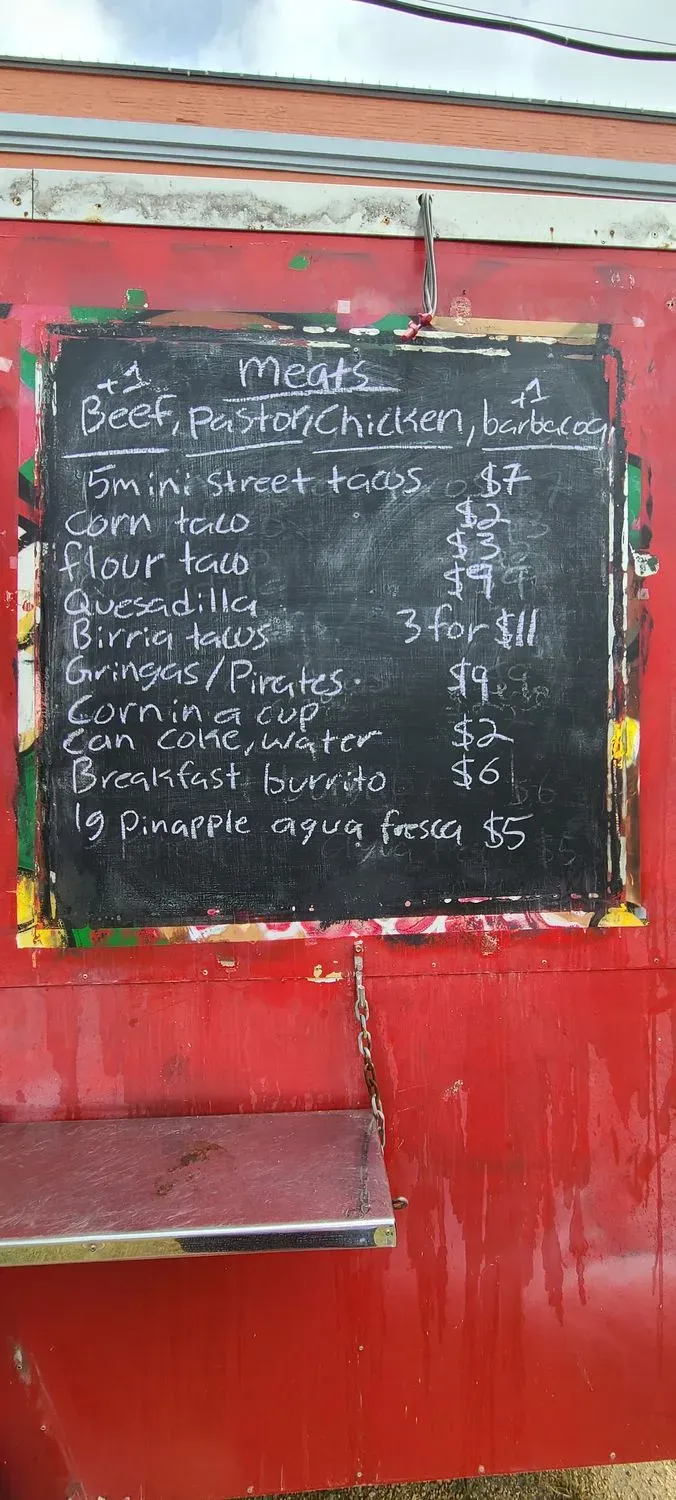 Meats
+1 +1
Beef, pastor, Chicken, barbacoa
5 mini street tacos $7
corn taco $2
flour taco $3
Quesadilla $9
Birria tacos 3 for $11
Gringas/Pirates. $9
Corn in a cup
can coke, water $2
Breakfast burrito $6
lg pinapple agua fresca $5